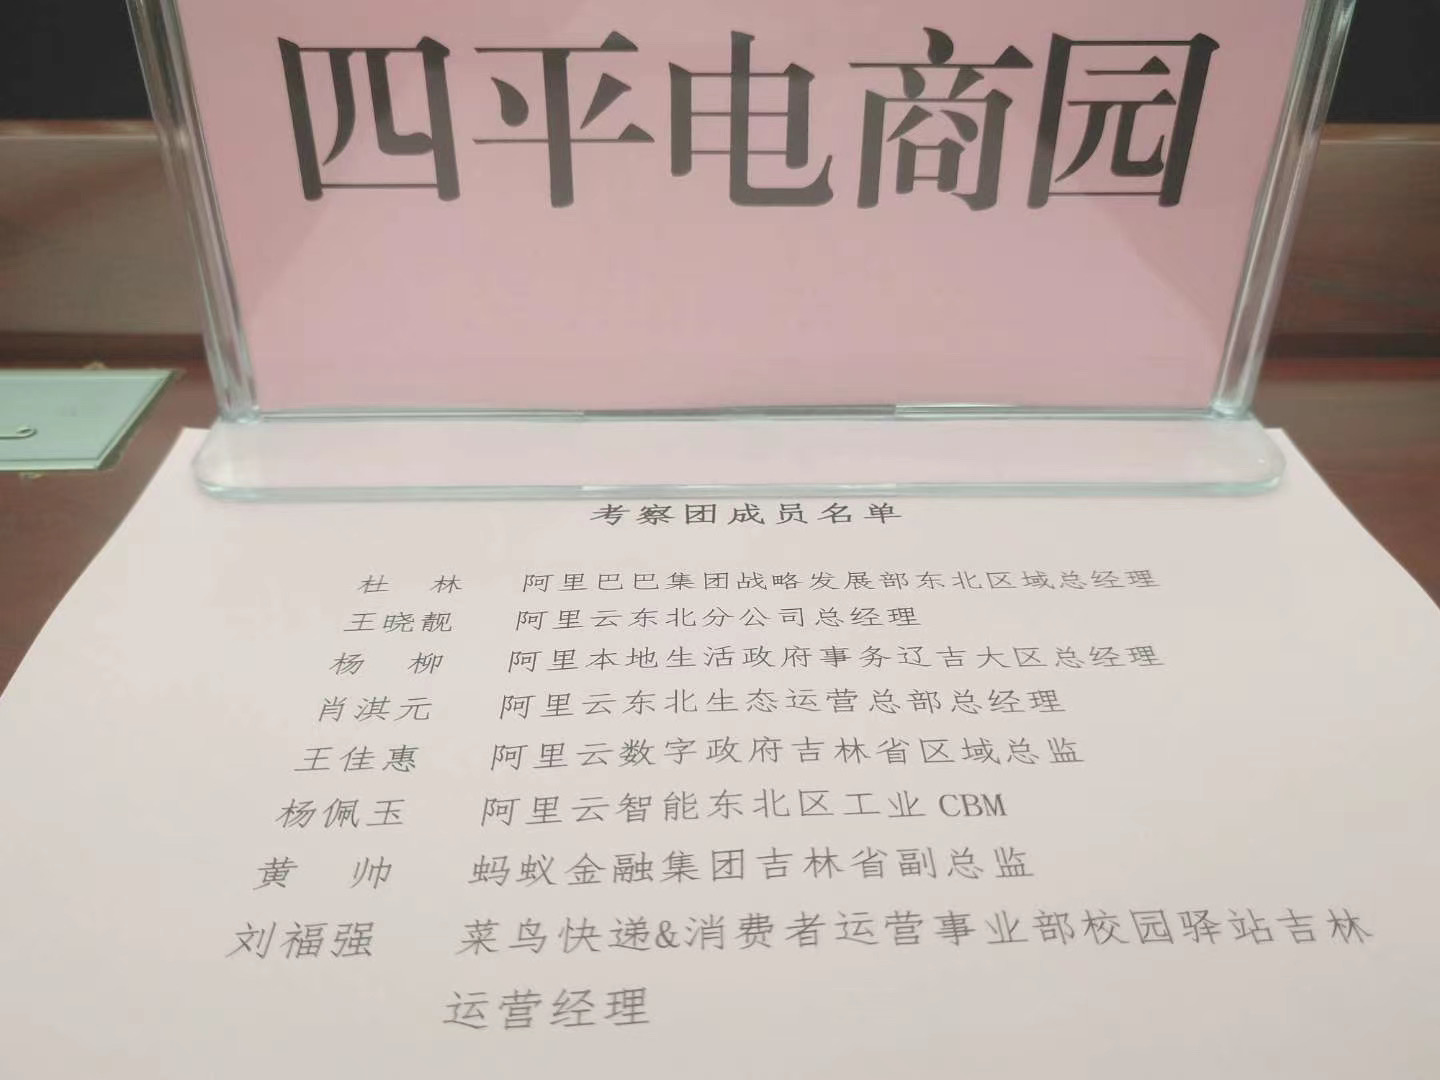 四平电商园
考察团成员名单
杜 林 阿里巴巴集团战略发展部东北区域总经理
王晓靓 阿里云东北分公司总经理
杨 柳 阿里本地生活政府事务辽吉大区总经理
肖淇元 阿里云东北生态运营总部总经理
王佳惠 阿里云数字政府吉林省区域总监
杨佩玉 阿里云智能东北区工业 CBM
黄 帅 蚂蚁金融集团吉林省副总监
刘福强 菜鸟快递&消费者运营事业部校园驿站吉林
运营经理